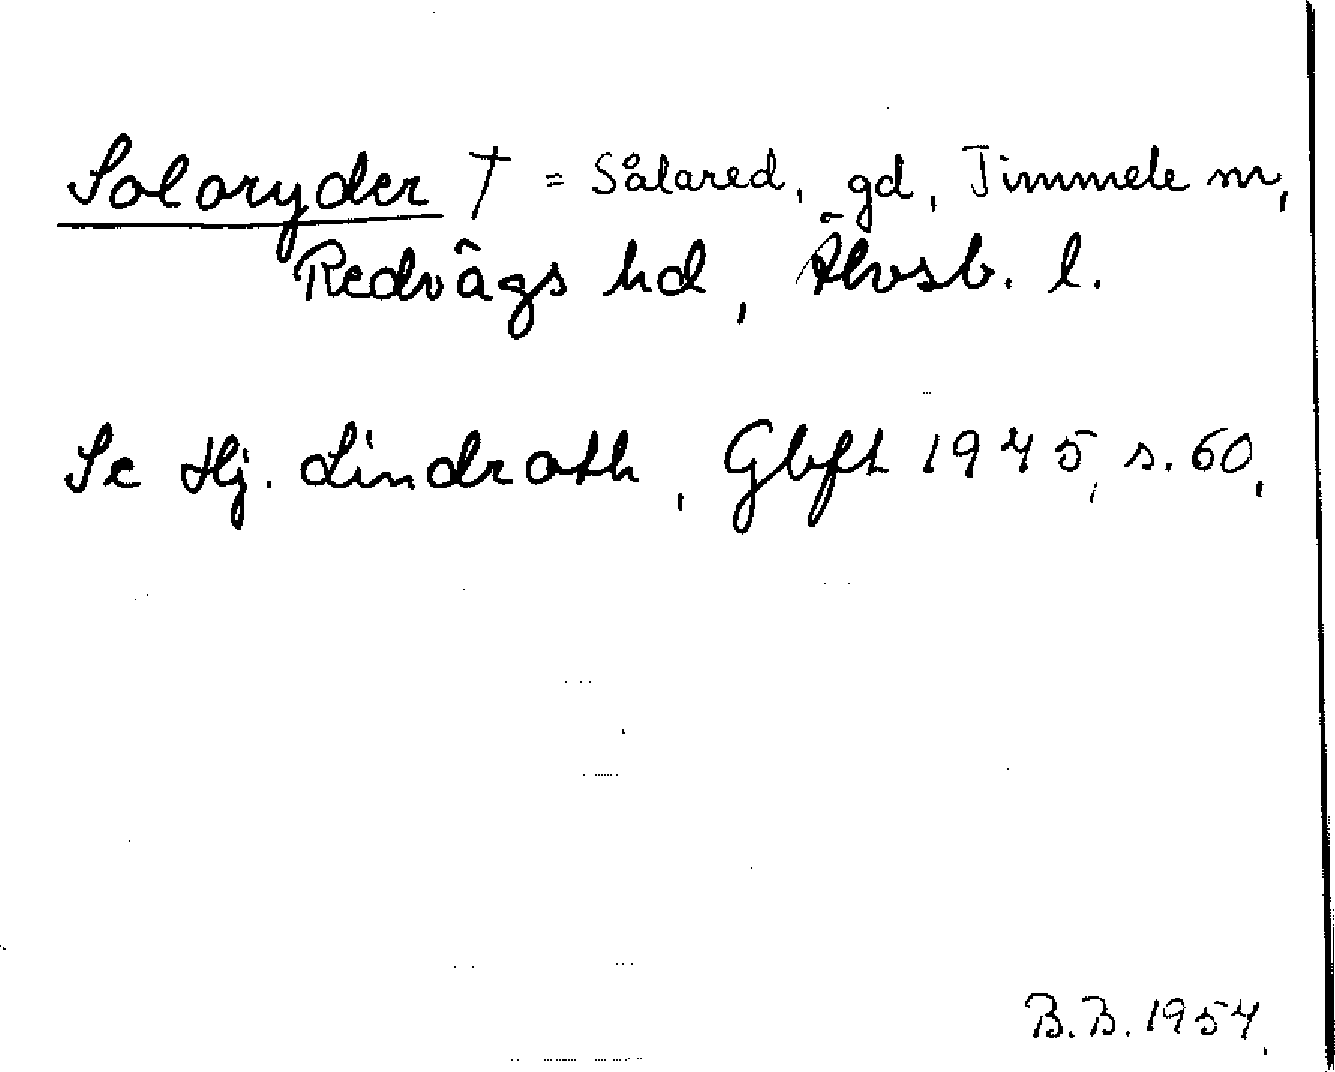 Soloryder † = Sålared, gd, Timmele sn,
Redvägs hd, Älvsb. l.
Se Hj. Lindroth, Gbft 1945, s. 60.
B.B. 1954.